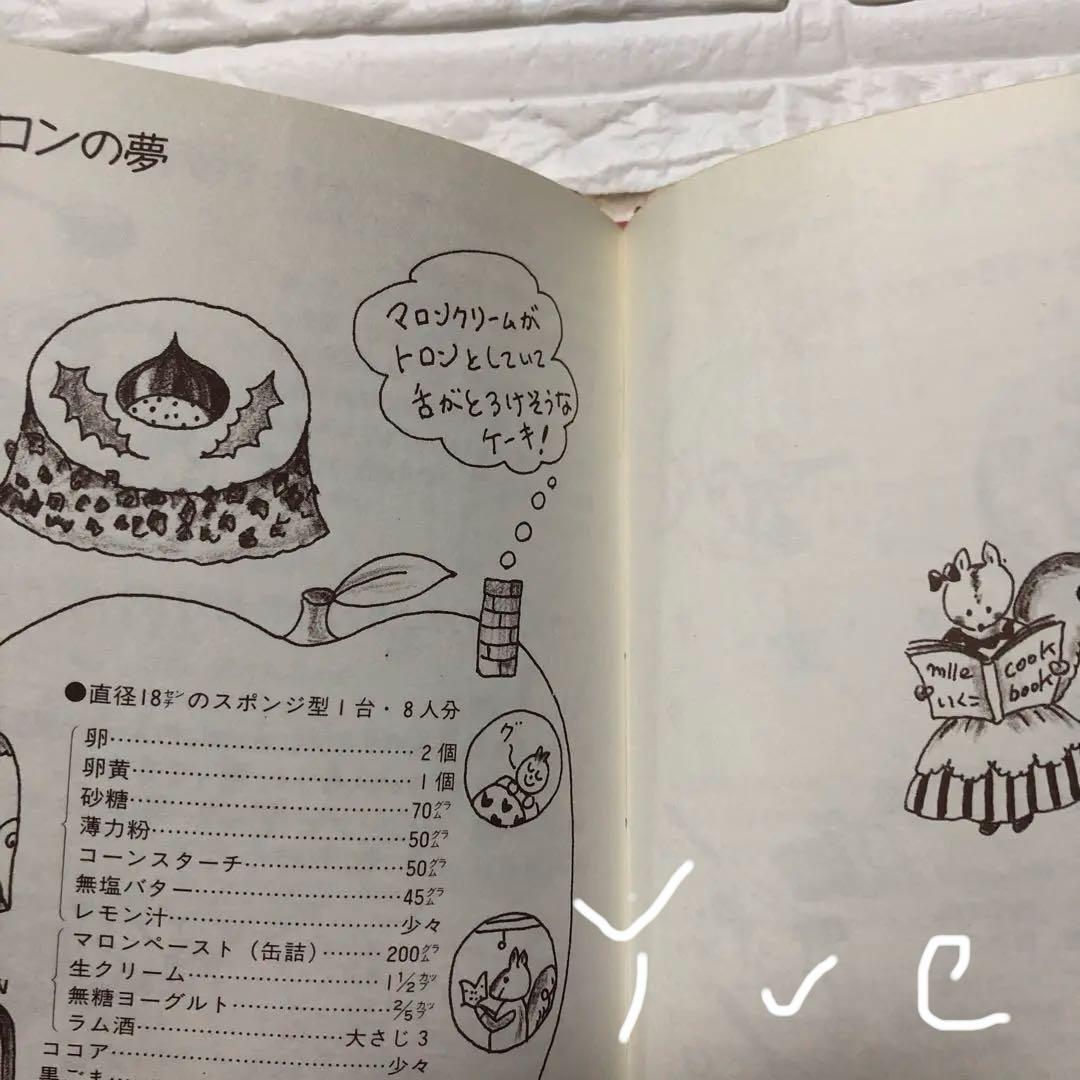 ロンの夢
マロンクリームが
トロンとしていて
舌がとろけそうな
ケーキ!
●直径18センチのスポンジ型1台・8人分
卵……2個
卵黄……1個
砂糖……70グラム
薄力粉……50グラム
コーンスターチ……50グラム
無塩バター……45グラム
レモン汁……少々
マロンペースト(缶詰)……200グラム
生クリーム……1 1/2カップ
無糖ヨーグルト……2/5カップ
ラム酒……大さじ3
ココア……少々
黒ごま…
グー
mlle
いくこ
cook
book